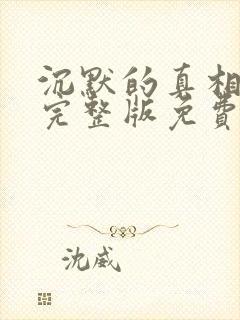 沉默的真相
完整版免費
沈威